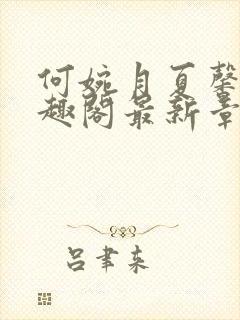 何婉月夏馨
趣阁最新章
吕聿来